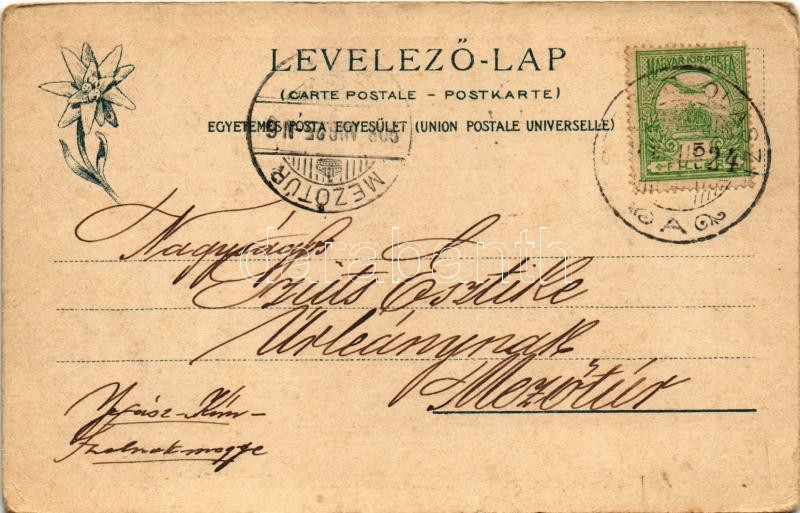 LEVELEZŐ-LAP
(CARTE POSTALE – POSTKARTE)
EGYETEMES POSTA EGYESÜLET (UNION POSTALE UNIVERSELLE)
MAGYAR KIR. POSTA
MEZŐTUR
906 AUG 25
A
24
Nagyságos
Szüts Esztike
Urleánynak
Mezőtúr
Jász-Kún-
Szolnokmegye
darabanth